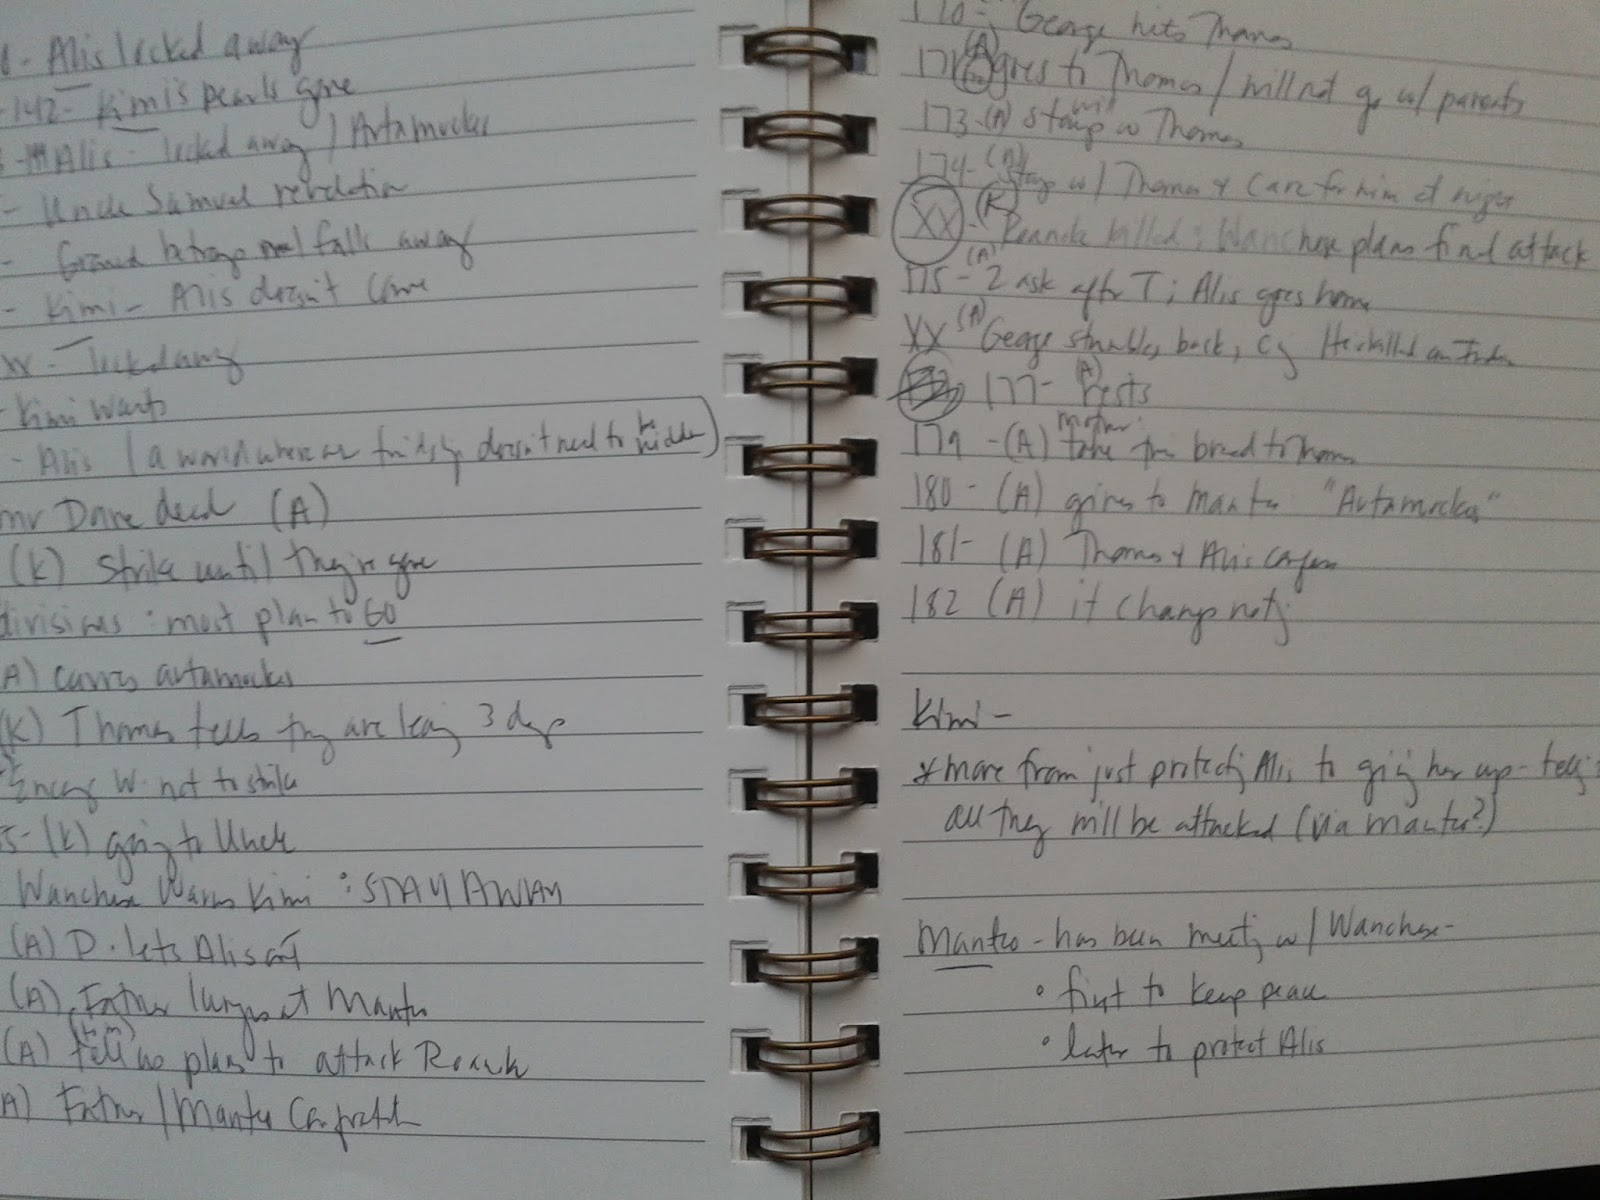 - Alis locked away
-142- Kimi's pearls gone
Alis - locked away / Avtamockes
- Uncle Samuel revelation
- Grand betrayal falls away
- Kimi - Alis doesn't come
xx - locked away
- Kimi wants
- Alis (a world where friendship doesn't need to be hidden)
mr Dare dead (A)
(K) strike until they're gone
divisions: most plan to GO
A) carves avtamockes
(K) Thomas tells they are leaving 3 days
W. not to strike
5- (K) going to Uncle
Wanchese Warns Kimi : STAY AWAY
(A) D. lets Alis out
(A) Father lunges at Manteo
(A) tell him no plans to attack Roanoke
A) Father / Manteo
170- George hits Thomas
171 (A) goes to Thomas / will not go w/ parents
173-(A) stays with Thomas
174-(A) stays w/ Thomas + care for him at night
XX - (K) Roanoke killed; Wanchese plans final attack
175-(A) 2 ask after T; Alis goes home
XX (A) George stumbles back, He killed an Indian
177- (A) Rests
179 -(A) mother bread to Thomas
180- (A) gives to Manteo "Avtamockes"
181- (A) Thomas + Alis confess
182 (A) it changes nothing
Kimi -
* move from just protecting Alis to giving her up - telling
all they will be attacked (via Manteo?)
Manteo - has been meeting w/ Wanchese -
• first to keep peace
• later to protect Alis